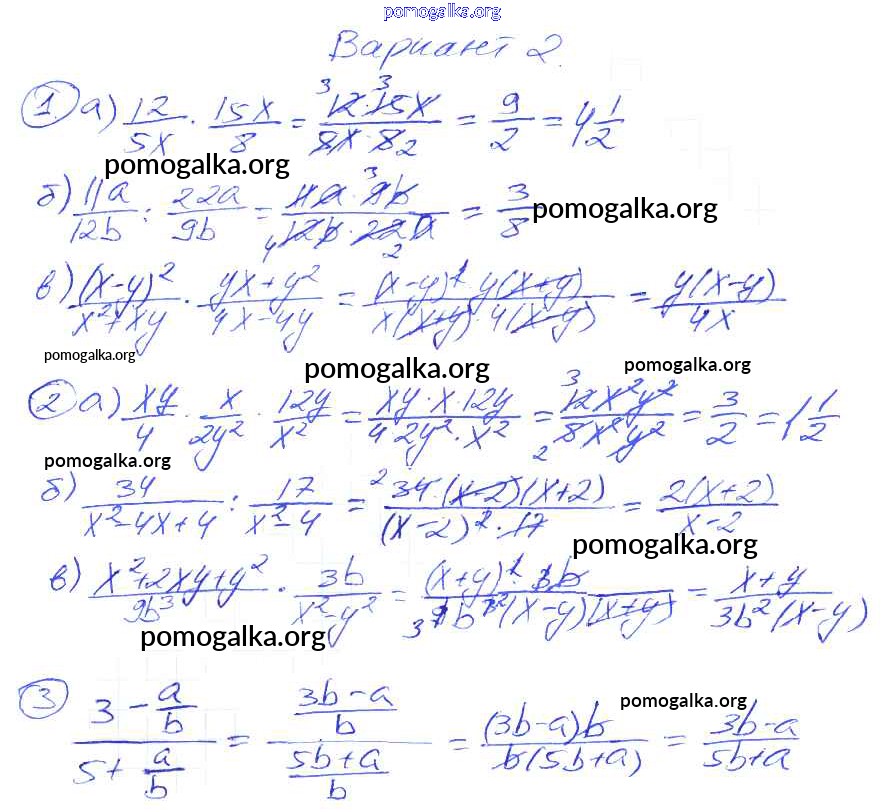 pomogalka.org
Вариант 2.
① а) 12/5x · 15x/8 = 12·15x/8x·8 = 9/2 = 4 1/2
pomogalka.org
б) 11a/12b : 22a/9b = 11a·9b/12b·22a = 3/8 pomogalka.org
в) (x-y)²/x²+xy · yx+y²/4x-4y = (x-y)² y(x+y)/x(x+y)·4(x-y) = y(x-y)/4x
pomogalka.org pomogalka.org pomogalka.org
② а) xy/4 · x/2y² · 12y/x² = xy·x·12y/4·2y²·x² = 12x²y²/8x²y² = 3/2 = 1 1/2
pomogalka.org
б) 34/x²-4x+4 : 17/x²-4 = 34·(x-2)(x+2)/(x-2)²·17 = 2(x+2)/x-2
pomogalka.org
в) x²+2xy+y²/9b³ · 3b/x²-y² = (x+y)²·3b/9b³(x-y)(x+y) = x+y/3b²(x-y)
pomogalka.org
③ 3-a/b / 5+a/b = 3b-a/b / 5b+a/b = (3b-a)b/b(5b+a) = 3b-a/5b+a
pomogalka.org